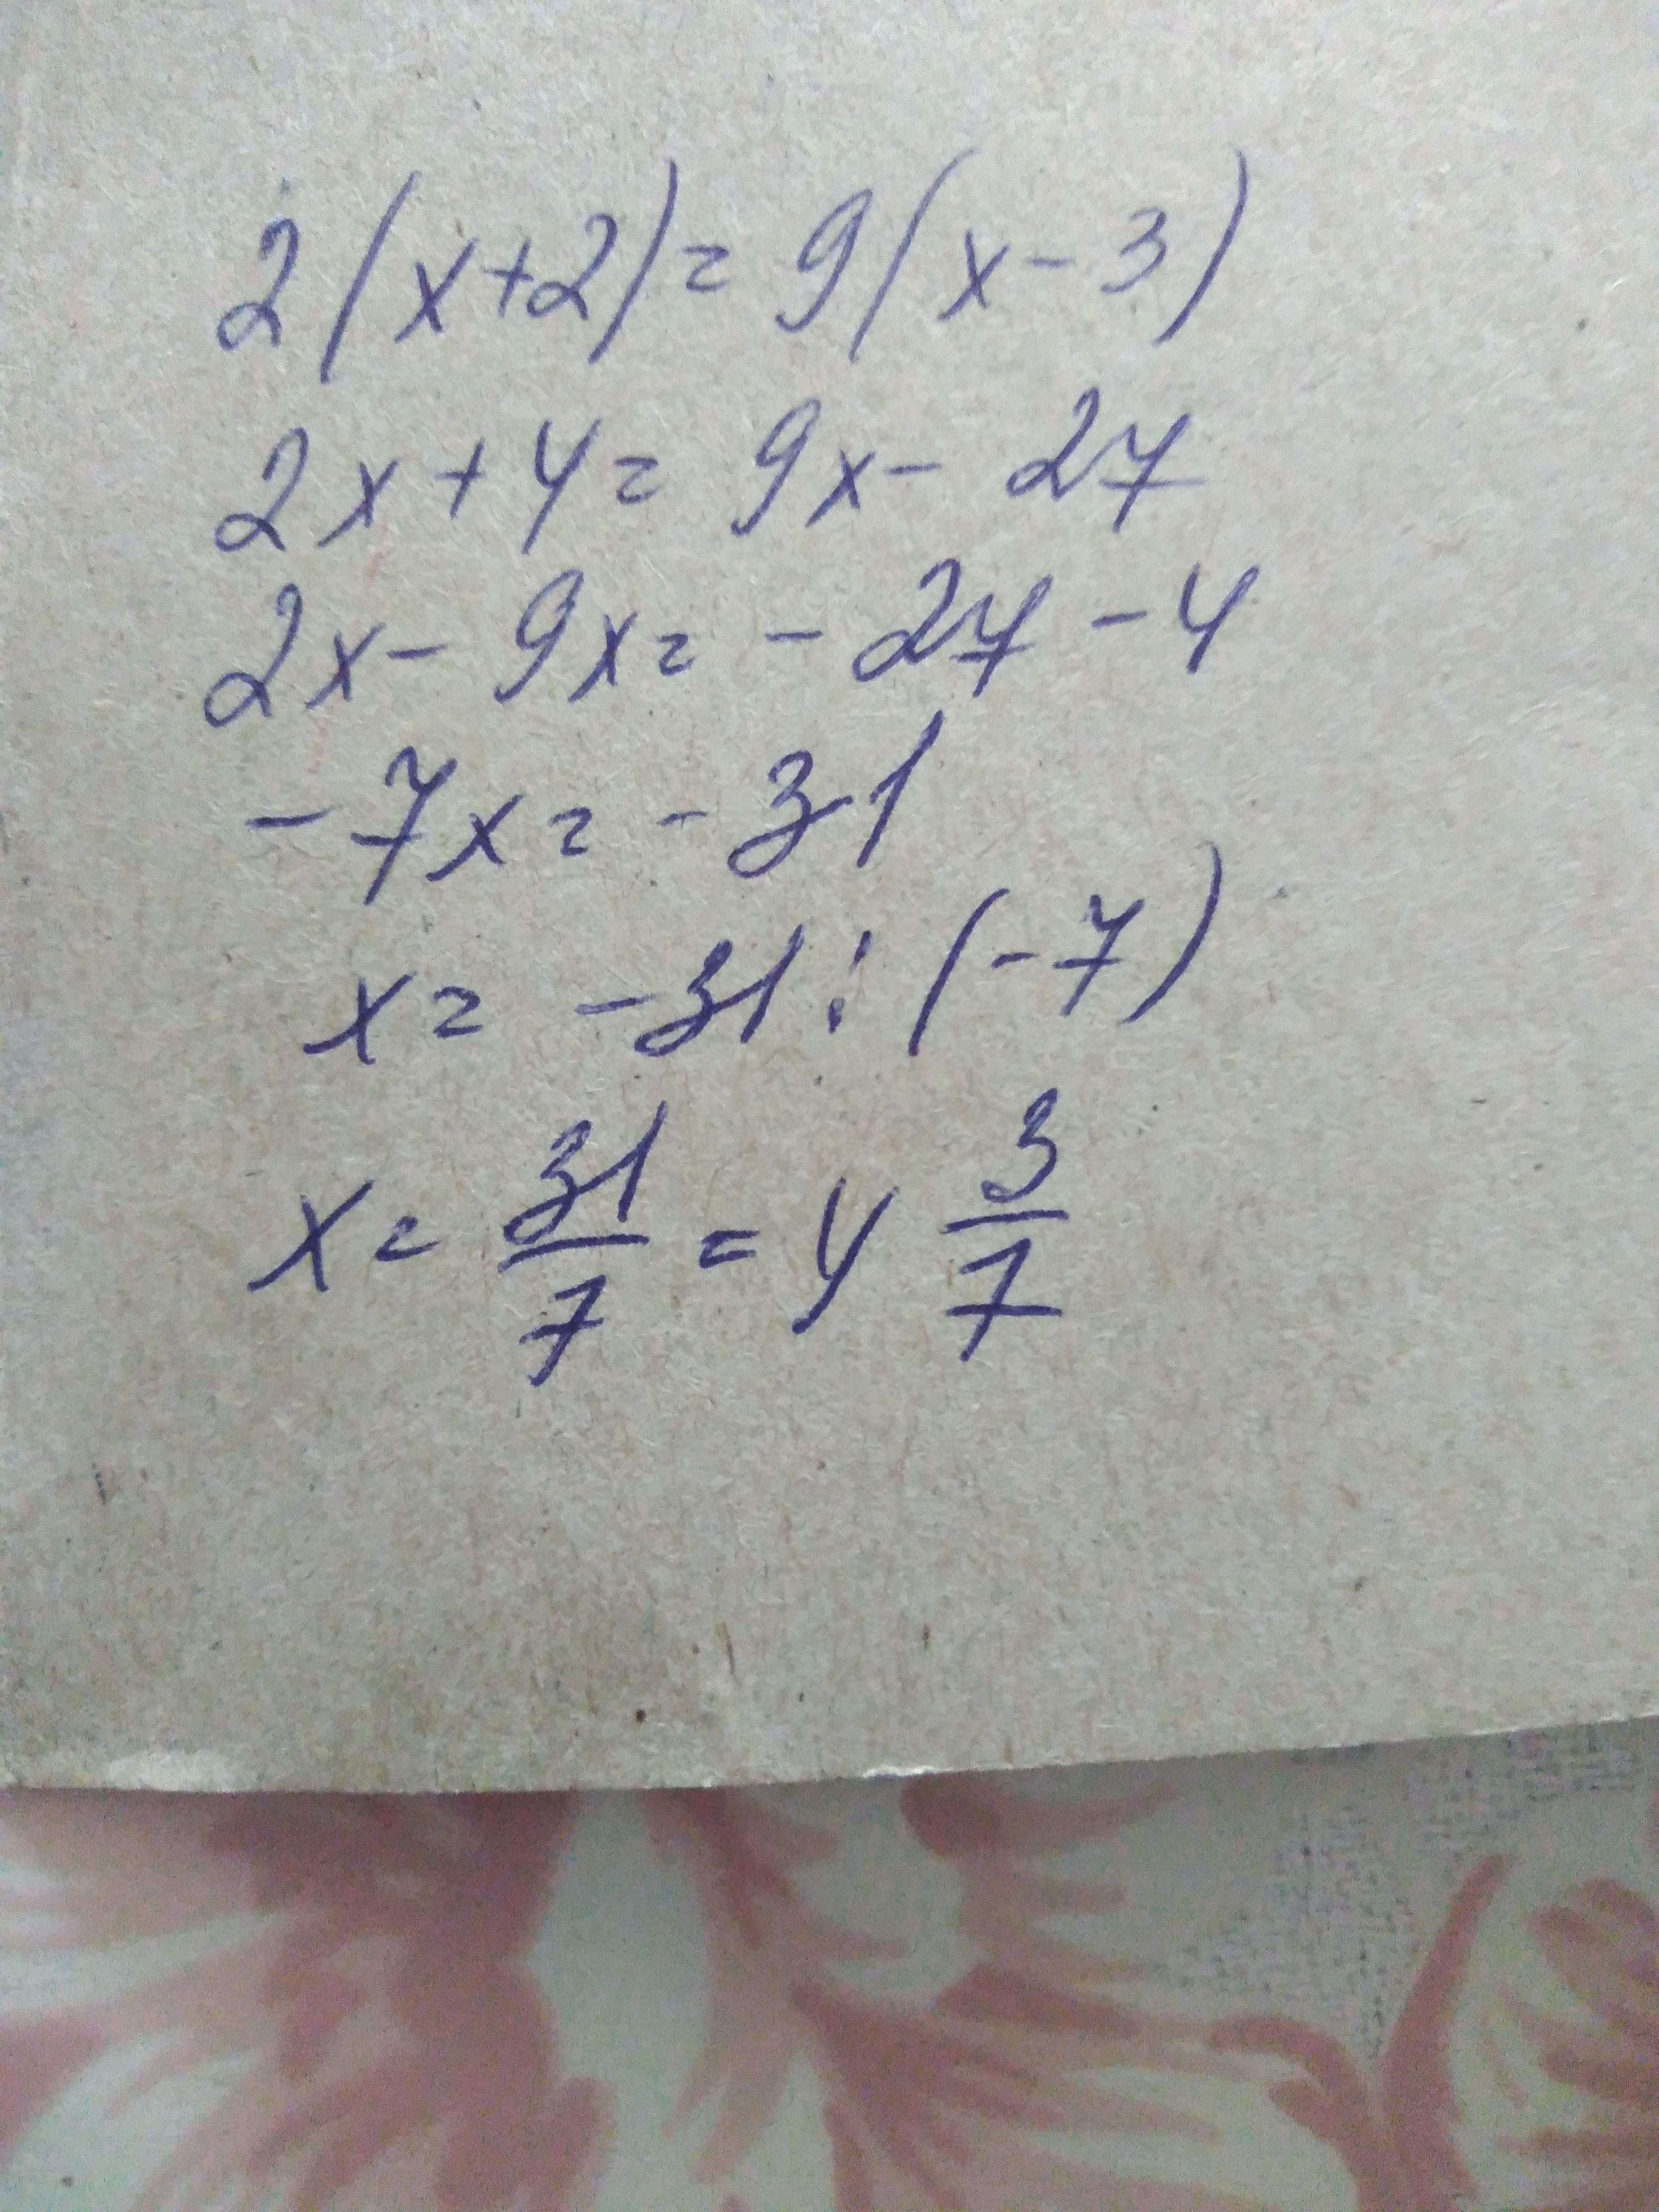 2(x+2)=9(x-3)
2x+4=9x-27
2x-9x=-27-4
-7x=-31
x=-31:(-7)
x=31/7=4 3/7